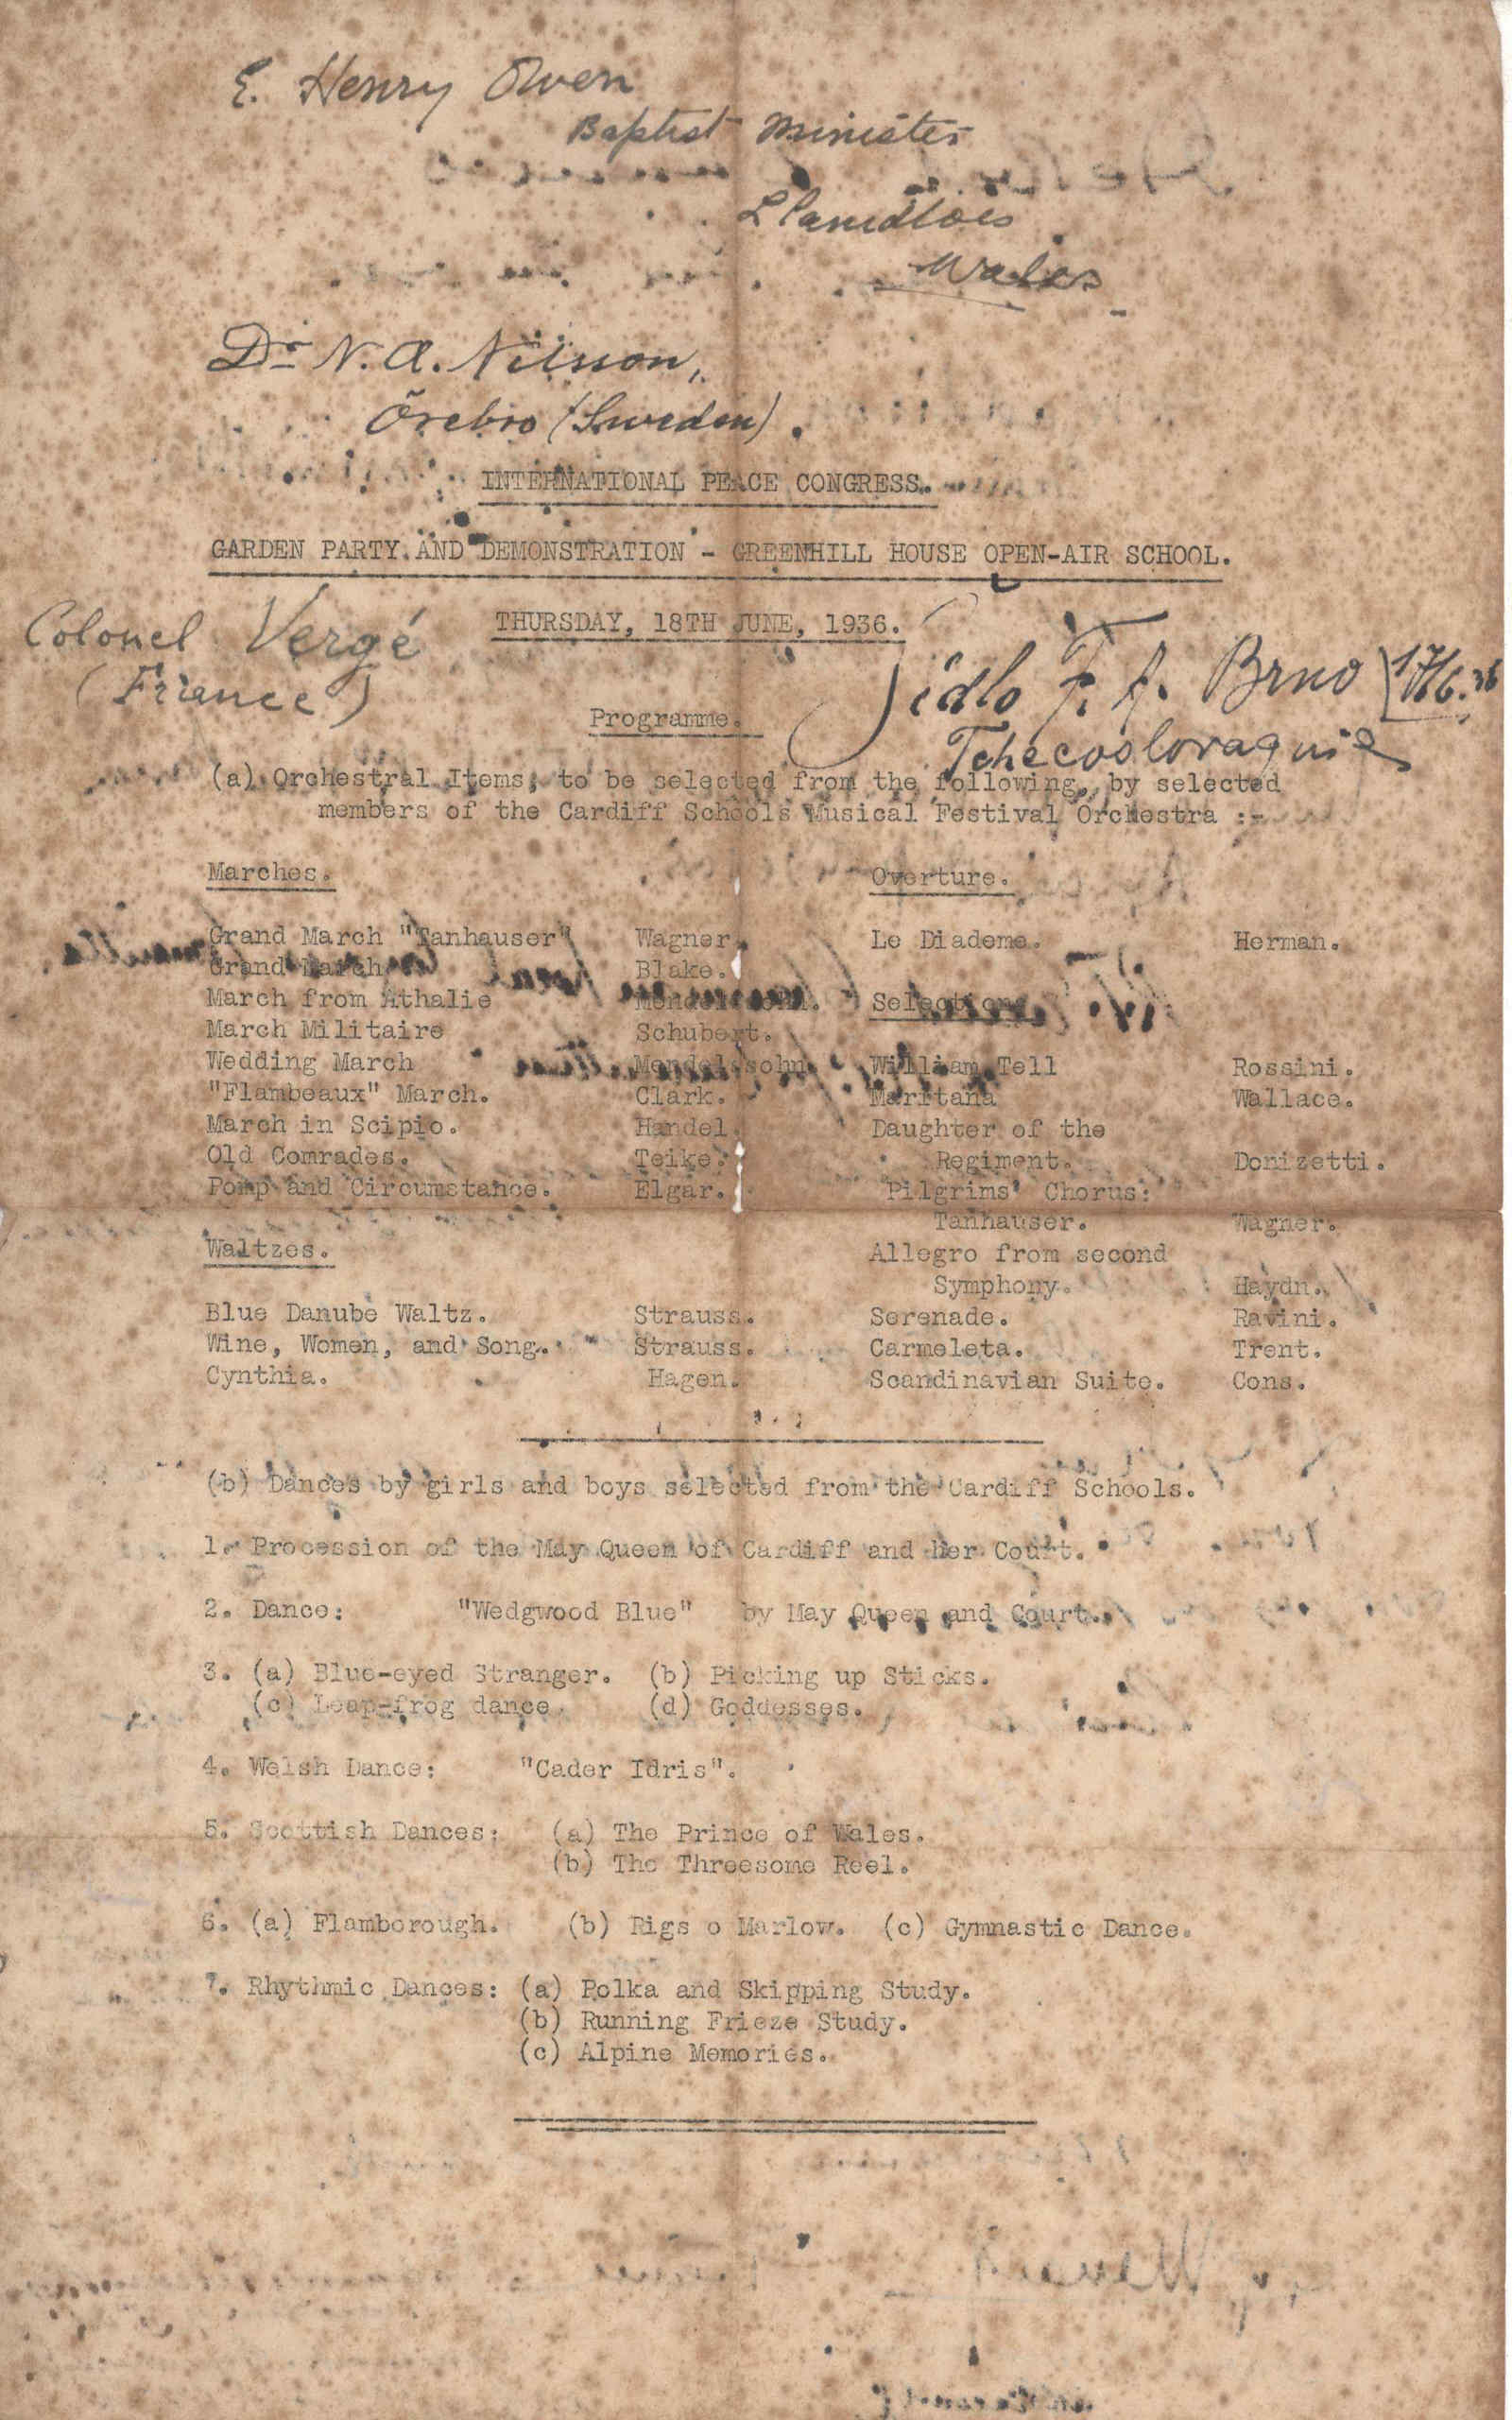 E. Henry Owen
Baptist Minister
Llanidloes
Wales
Dr N. A. Nilsson,
Örebro (Sweden).
INTERNATIONAL PEACE CONGRESS.
GARDEN PARTY AND DEMONSTRATION - GREENHILL HOUSE OPEN-AIR SCHOOL.
THURSDAY, 18TH JUNE, 1936.
Colonel Vergé
(France)
Jídlo F. A. Brno 17/6.36
Tchecoslovaquie
Programme.
(a) Orchestral Items, to be selected from the following, by selected
members of the Cardiff Schools Musical Festival Orchestra :-
Marches. Overture.
Grand March "Tanhauser" Wagner. Le Diademe. Herman.
Grand March Blake.
March from Athalie Mendelssohn. Selection
March Militaire Schubert.
Wedding March Mendelssohn William Tell Rossini.
"Flambeaux" March. Clark. Maritana Wallace.
March in Scipio. Handel. Daughter of the
Old Comrades. Teike. Regiment. Donizetti.
Pomp and Circumstance. Elgar. Pilgrims' Chorus:
Tanhauser. Wagner.
Waltzes. Allegro from second
Symphony. Haydn.
Blue Danube Waltz. Strauss. Serenade. Ravini.
Wine, Women, and Song. Strauss. Carmeleta. Trent.
Cynthia. Hagen. Scandinavian Suite. Cons.
(b) Dances by girls and boys selected from the Cardiff Schools.
1. Procession of the May Queen of Cardiff and her Court.
2. Dance: "Wedgwood Blue" by May Queen and Court.
3. (a) Blue-eyed Stranger. (b) Picking up Sticks.
(c) Leap-frog dance. (d) Goddesses.
4. Welsh Dance: "Cader Idris".
5. Scottish Dances: (a) The Prince of Wales.
(b) The Threesome Reel.
6. (a) Flamborough. (b) Rigs o Marlow. (c) Gymnastic Dance.
7. Rhythmic Dances: (a) Polka and Skipping Study.
(b) Running Frieze Study.
(c) Alpine Memories.